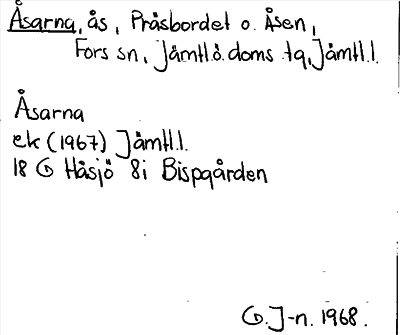 Åsarna, ås, Pråsbordet o. Åsen,
Fors sn, Jämtl.ö. doms. tg, Jämtl.l.
Åsarna
ek (1967) Jämtl.l.
18 G Håsjö 8i Bispgården
G. J-n. 1968.